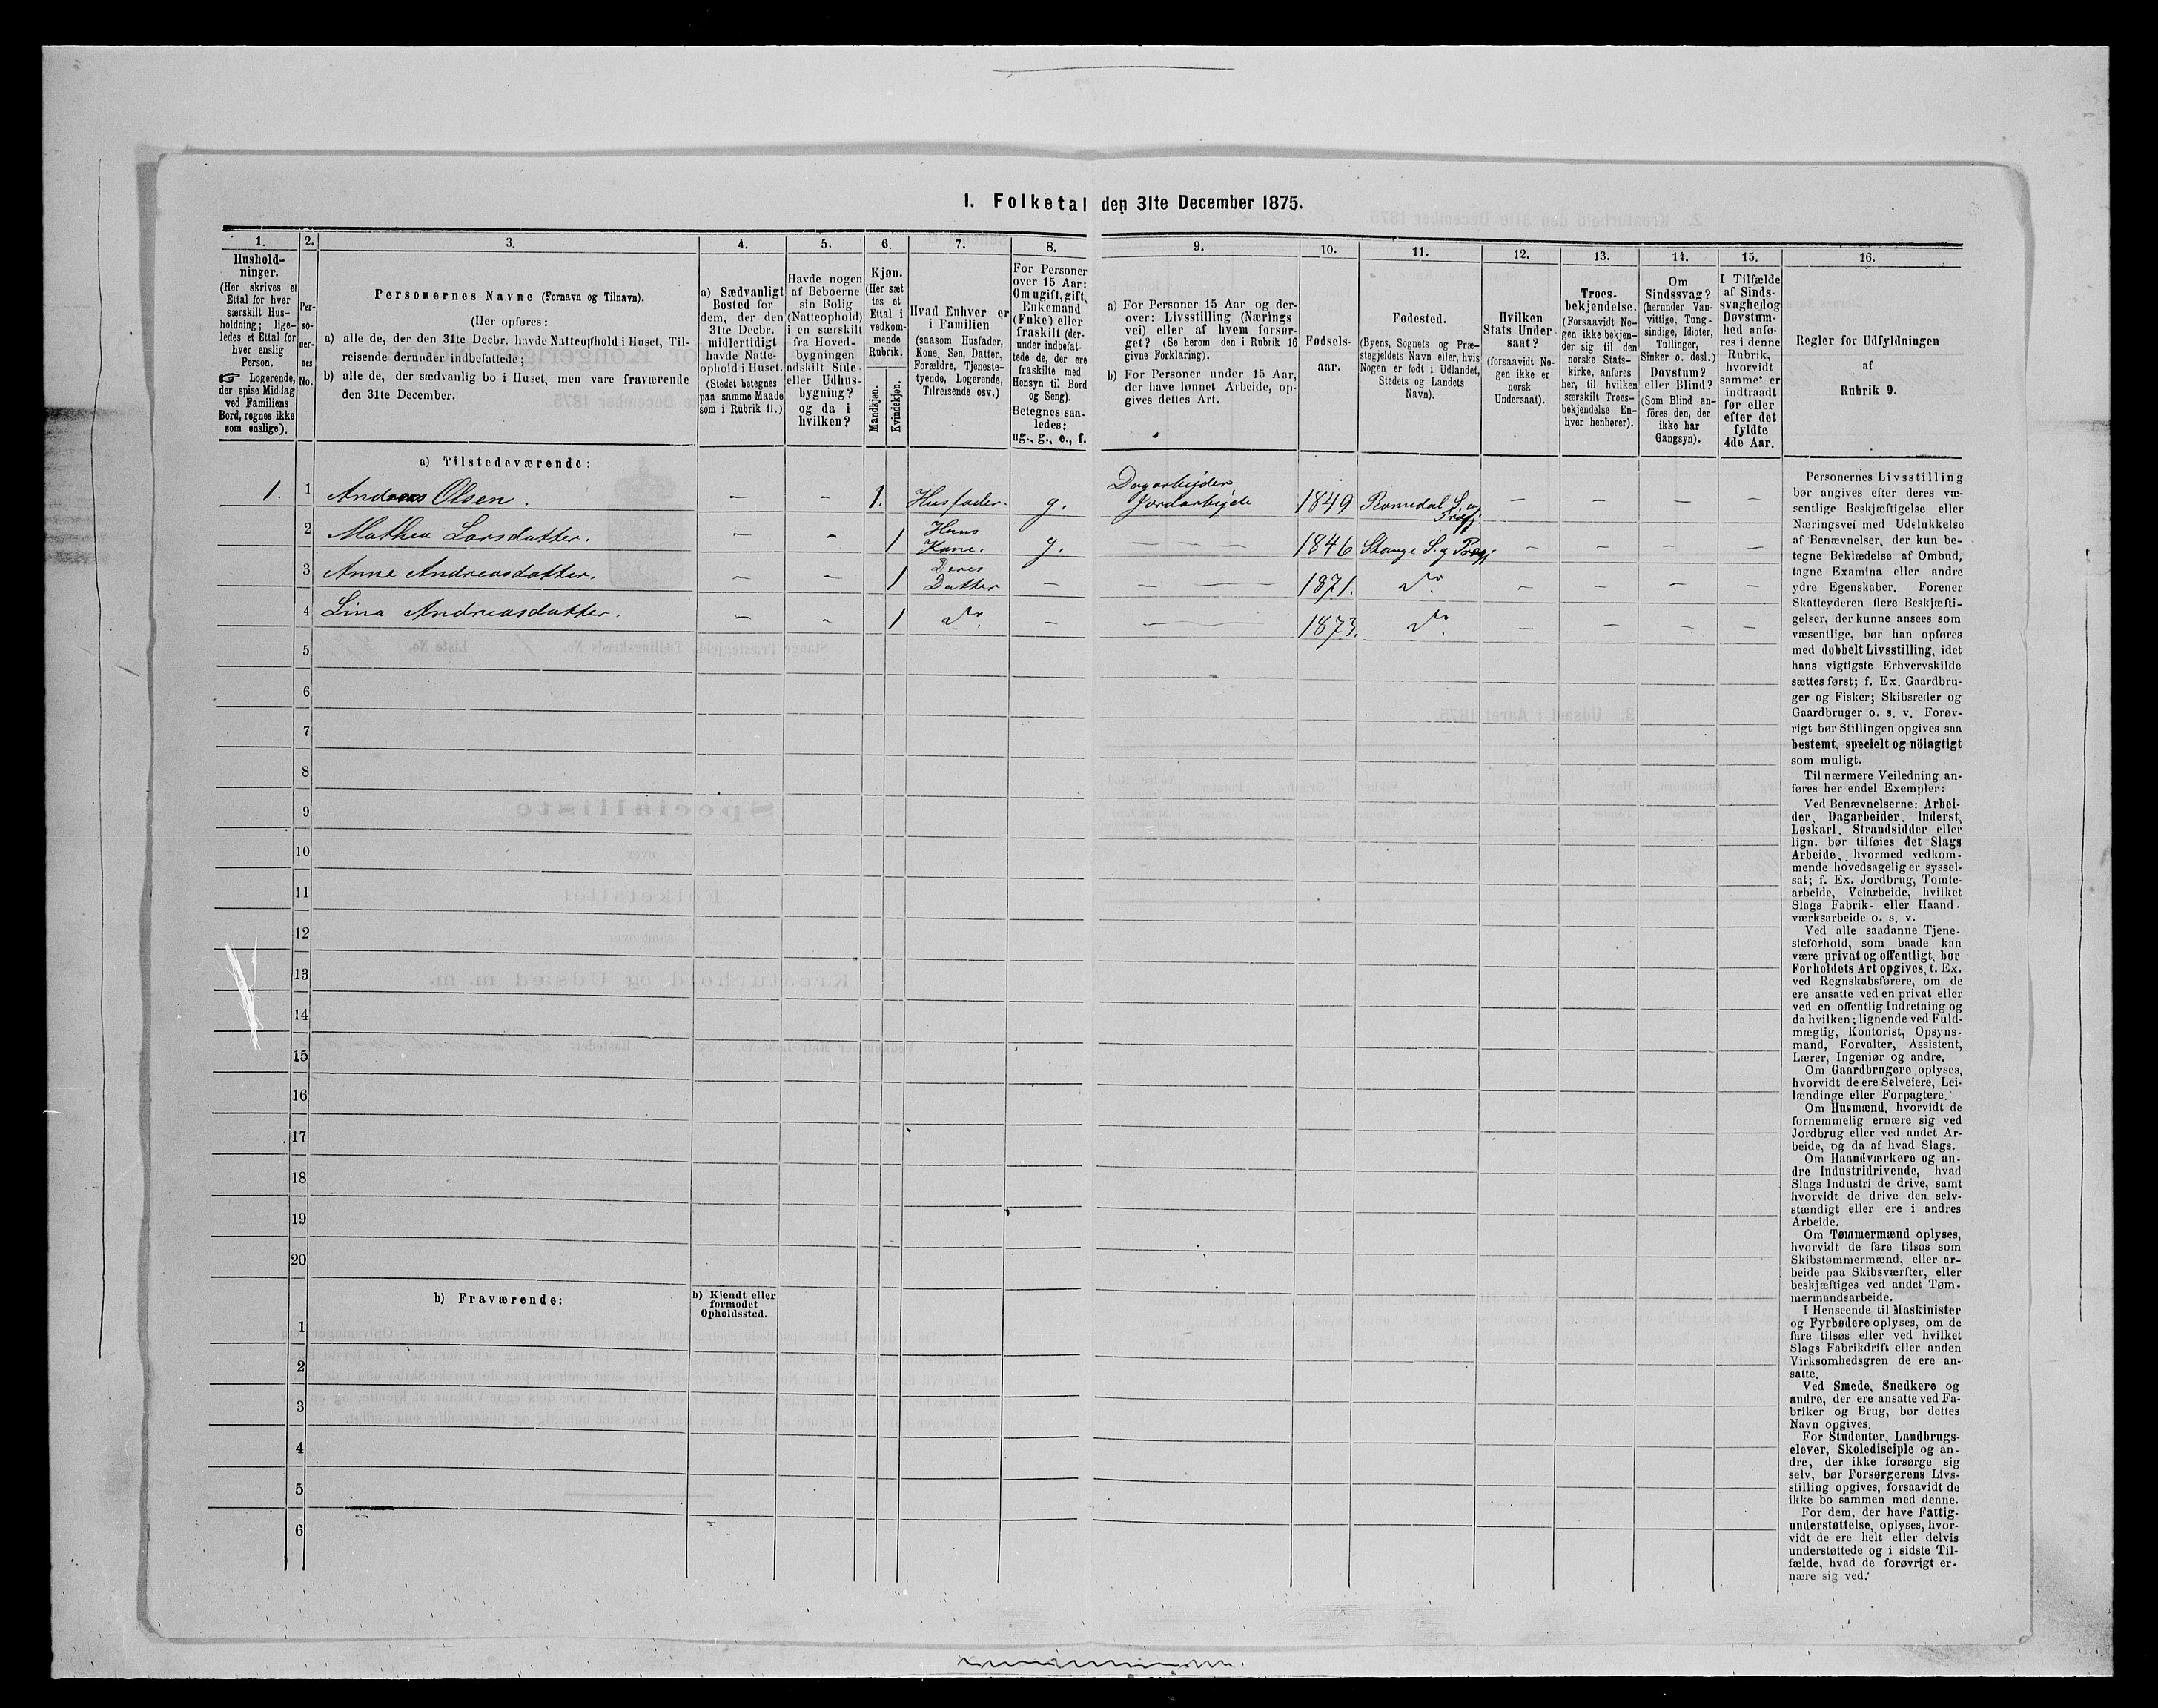 I. Folketal den 31te December 1875.
1. 2. 3. 4. 5. 6. 7. 8. 9. 10. 11. 12. 13. 14. 15. 16.
Hushold-
ninger.
(Her skrives et
Ettal for hver
særskilt Hus-
holdning; lige-
ledes et Ettal for
hver enslig
Person.
☞ Logerende,
der spise Middag
ved Familiens
Bord, regnes ikke
som enslige).
Per-
so-
ner-
nes
No.
Personernes Navne (Fornavn og Tilnavn).
(Her opføres:
a) alle de, der den 31te Decbr. havde Natteophold i Huset, Til-
reisende derunder indbefattede;
b) alle de, der sædvanlig bo i Huset, men vare fraværende
den 31te December.
a) Sædvanligt
Bosted for
dem, der den
31te Decbr.
midlertidigt
havde Natte-
ophold i Huset.
(Stedet betegnes
paa samme Maade
som i Rubrik 11.)
Havde nogen
af Beboerne
sin Bolig
(Natteophold)
i en særskilt
fra Hoved-
bygningen
adskilt Side-
eller Udhus-
bygning?
og da i
hvilken?
Kjøn.
(Her sæt
tes et
Ettal i
vedkom-
mende
Rubrik.
Mandkjøn.
Kvindekjøn.
Hvad Enhver er
i Familien
(saasom Husfader,
Kone, Søn, Datter,
Forældre, Tjeneste-
tyende, Logerende,
Tilreisende osv.)
For Personer
over 15 Aar:
Om ugift, gift,
Enkemand
(Enke) eller
fraskilt (der-
under indbefat-
tede de, der ere
fraskilte med
Hensyn til Bord
og Seng).
Betegnes saa-
ledes:
ug., g., e., f.
a) For Personer 15 Aar og der-
over: Livsstilling (Nærings
vei) eller af hvem forsør-
get? (Se herom den i Rubrik 16
givne Forklaring).
b) For Personer under 15 Aar,
der have lønnet Arbeide, op-
gives dettes Art.
Fødsels-
aar.
Fødested.
(Byens, Sognets og Præ-
stegjeldets Navn eller, hvis
Nogen er født i Udlandet,
Stedets og Landets
Navn).
Hvilken
Stats Under-
saat?
(forsaavidt No-
gen ikke er
norsk
Undersaat).
Troes-
bekjendelse.
(Forsaavidt No-
gen ikke bekjen-
der sig til den
norske Stats-
kirke, anføres
her, til hvilken
særskilt Troes-
bekjendelse En-
hver henhører).
Om
Sindssvag?
(herunder Van-
vittige, Tung-
sindige, Idioter,
Tullinger,
Sinker o. desl.)
Døvstum?
eller Blind?
(Som Blind an-
føres den, der
ikke har
Gangsyn).
I Tilfælde
af Sinds-
svaghed og
Døvstum-
hed anfø-
res i denne
Rubrik,
hvorvidt
samme er
indtraadt
før eller
efter det
fyldte
4de Aar.
Regler for Udfyldningen
af
Rubrik 9.
a) Tilstedeværende:
1. 1 Andreas Olsen. – – 1. Husfader. g. Dagarbejder Jordarbejde 1849 Romedal S. og Præstgj. – – – –
2 Mathea Larsdatter. – – 1 Hans Kone. g. – – – 1846 Stange S. og Præstgj. – – – –
3 Anne Andreasdatter. – – 1 Deres Datter – – – 1871. do. – – – –
4 Lina Andreasdatter. – – 1 do. – – – 1873. do. – – – –
5
6
7
8
9
10
11
12
13
14
15
16
17
18
19
20
b) Fraværende:
b) Kjendt eller
formodet
Opholdssted.
1
2
3
4
5
6
Personernes Livsstilling
bør angives efter deres væ-
sentlige Beskjæftigelse eller
Næringsvei med Udelukkelse
af Benævnelser, der kun be-
tegne Beklædelse af Ombud,
tagne Examina eller andre
ydre Egenskaber. Forener
Skatteyderen flere Beskjæfti-
gelser, der kunne ansees som
væsentlige, bør han opføres
med dobbelt Livsstilling, idet
hans vigtigste Erhvervskilde
sættes først; f. Ex. Gaardbru-
ger og Fisker; Skibsreder og
Gaardbruger o. s. v. Forøv-
rigt bør Stillingen opgives saa
bestemt, specielt og nöiagtigt
som muligt.
Til nærmere Veiledning an-
føres her endel Exempler:
Ved Benævnelserne: Arbei-
der, Dagarbeider, Inderst,
Løskarl, Strandsidder eller
lign. bør tilføies det Slags
Arbeide, hvormed vedkom-
mende hovedsagelig er syssel-
sat; f. Ex. Jordbrug, Tomte-
arbeide, Veiarbeide, hvilket
Slags Fabrik- eller Haand-
værksarbeide o. s. v.
Ved alle saadanne Tjene-
steforhold, som baade kan
være privat og offentligt, bør
Forholdets Art opgives, t. Ex.
ved Regnskabsførere, om de
ere ansatte ved en privat eller
ved en offentlig Indretning og
da hvilken; lignende ved Fuld-
mægtig, Kontorist, Opsyns-
mand, Forvalter, Assistent,
Lærer, Ingeniør og andre.
Om Gaardbrugere oplyses,
hvorvidt de ere Selveiere, Lei-
lændinge eller Forpagtere.
Om Husmænd, hvorvidt de
fornemmelig ernære sig ved
Jordbrug eller ved andet Ar-
beide, og da af hvad Slags.
Om Haandværkere og an-
dre Industridrivende, hvad
Slags Industri de drive, samt
hvorvidt de drive den selv-
stændigt eller ere i andres
Arbeide.
Om Tømmermænd oplyses,
hvorvidt de fare tilsøs som
Skibstømmermænd, eller ar-
beide paa Skibsværfter, eller
beskjæftiges ved andet Tøm-
mermandsarbeide.
I Henseende til Maskinister
og Fyrbødere oplyses, om de
fare tilsøs eller ved hvilket
Slags Fabrikdrift eller anden
Virksomhedsgren de ere an-
satte.
Ved Smede, Snedkere og
andre, der ere ansatte ved Fa-
briker og Brug, bør dettes
Navn opgives.
For Studenter, Landbrugs-
elever, Skoledisciple og an-
dre, der ikke forsørge sig
selv, bør Forsørgerens Livs-
stilling opgives, forsaavidt de
ikke bo sammen med denne.
For dem, der have Fattig-
understøttelse, oplyses, hvor-
vidt de ere helt eller delvis
understøttede og i sidste Til-
fælde, hvad de forøvrigt er-
nære sig ved.